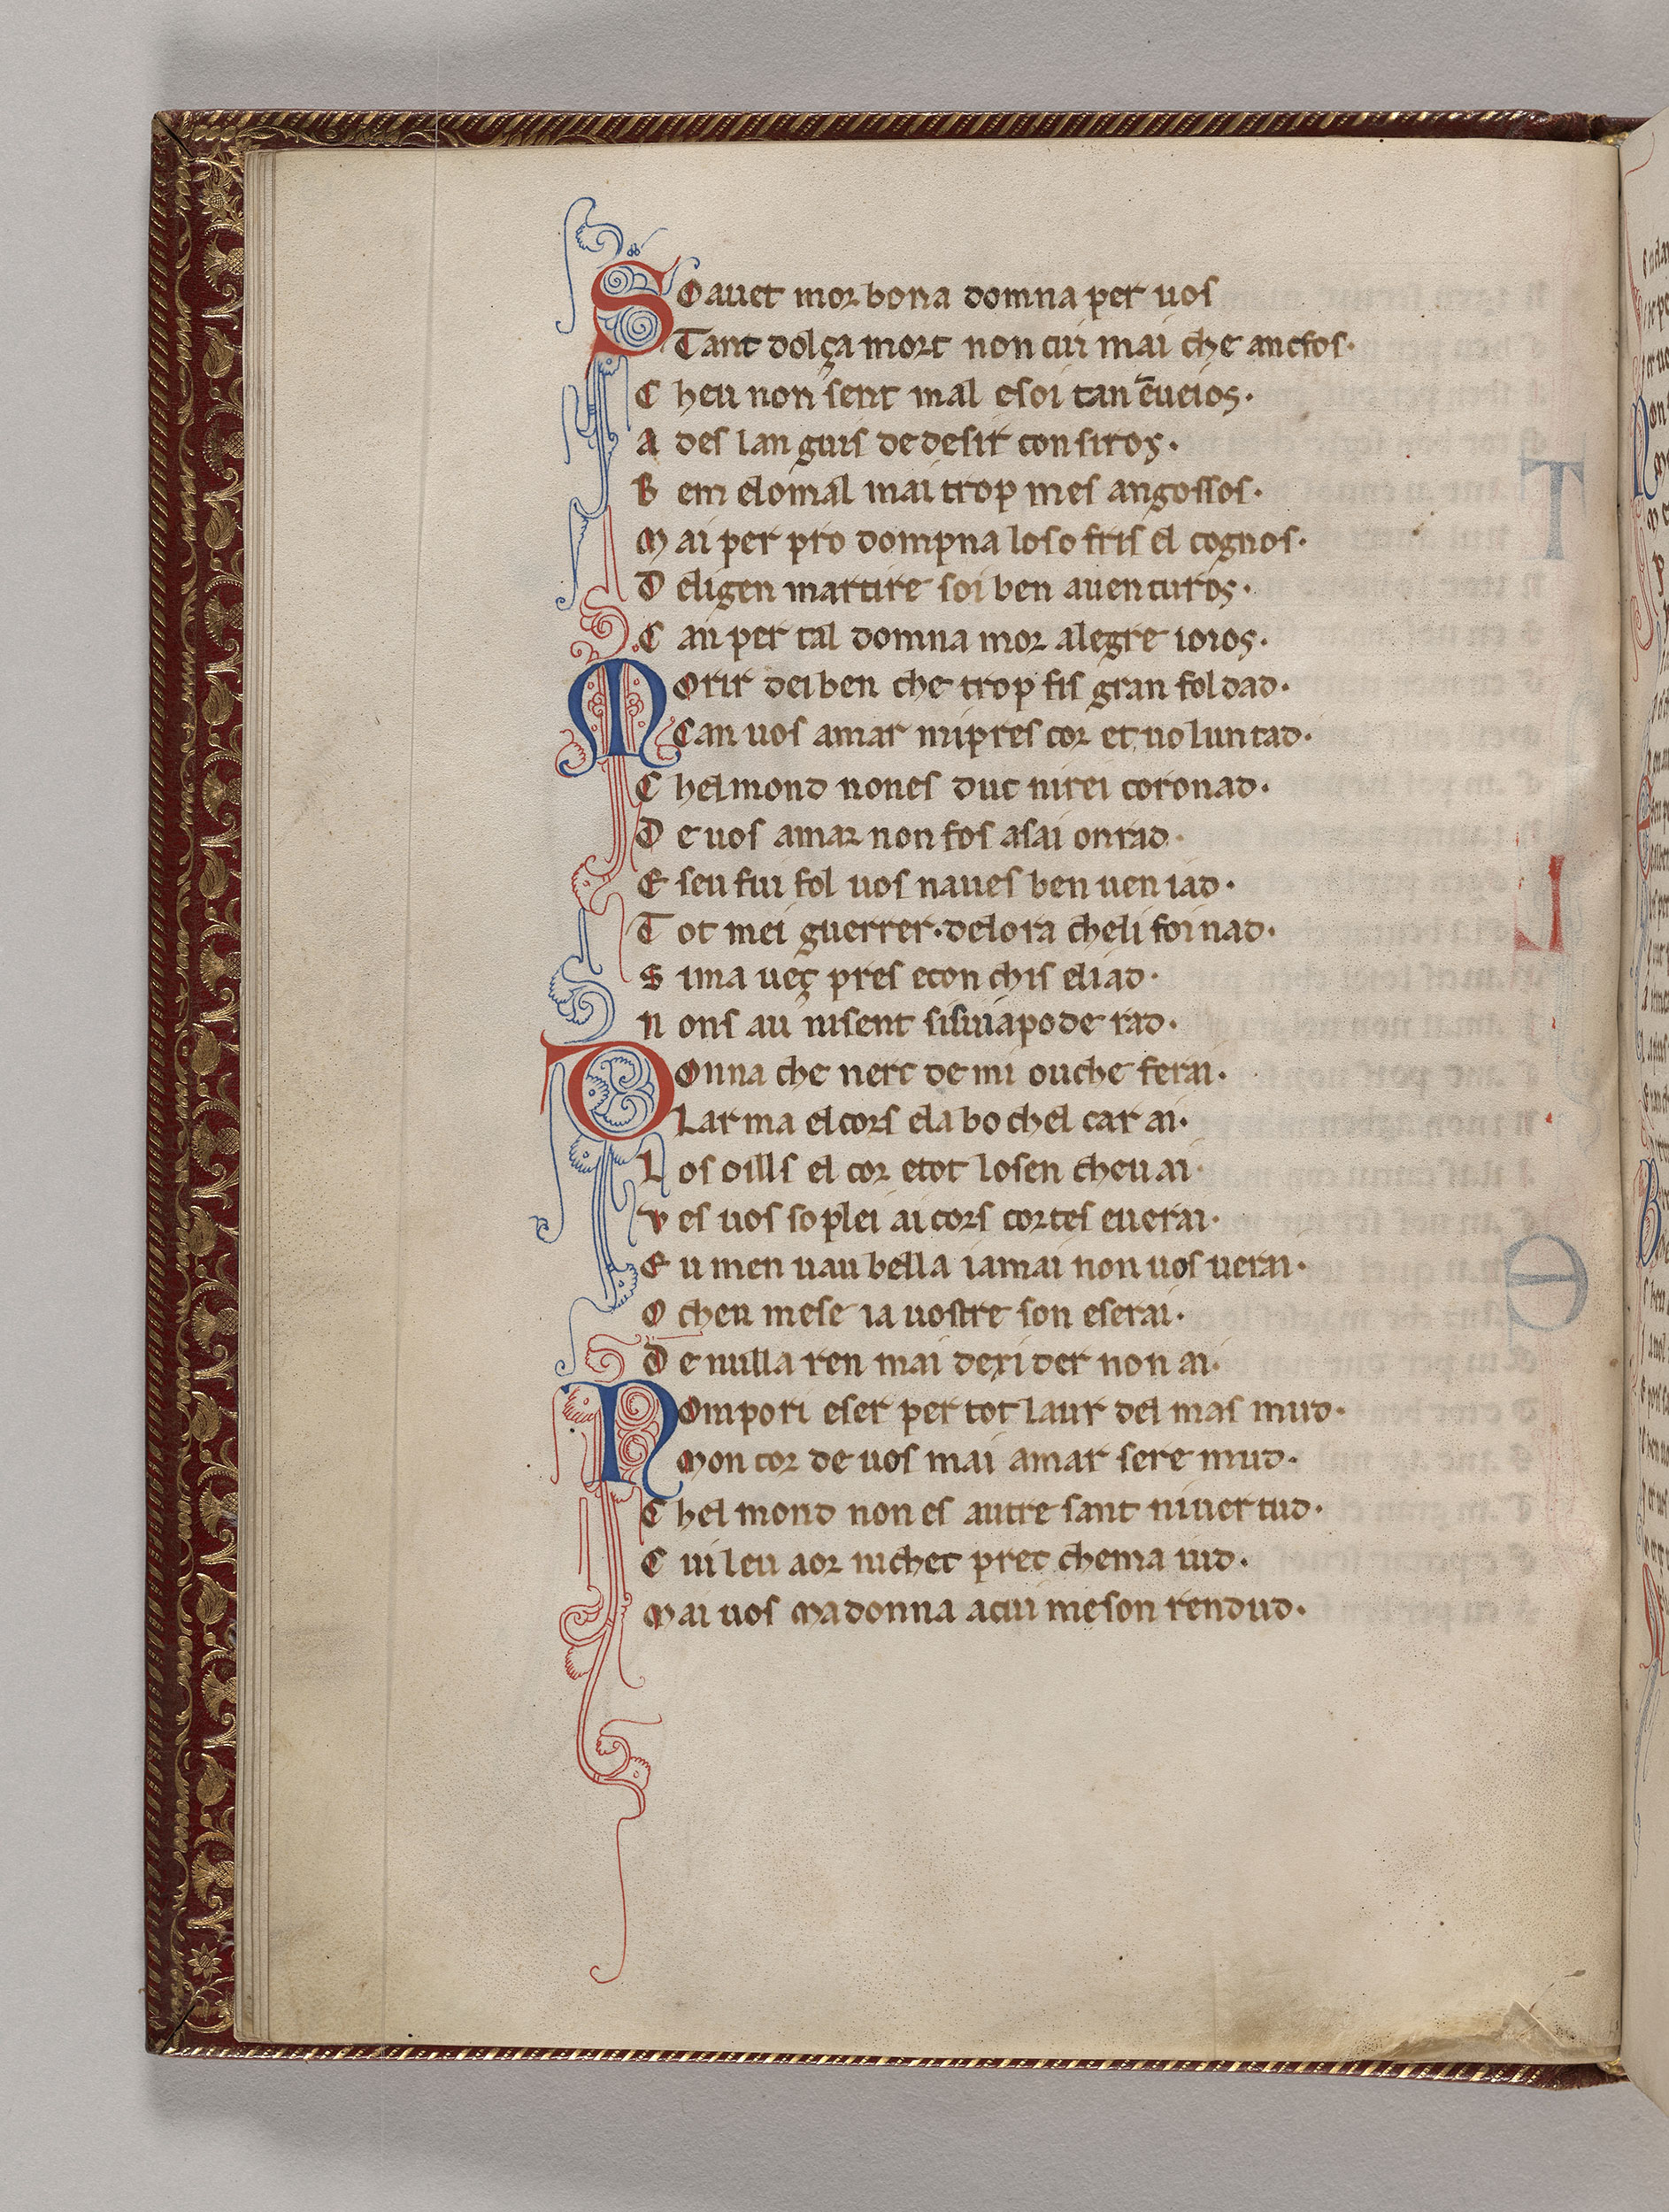 Soauet mor bona domna per uos
Tant dolça mort non cui mai che anc fos.
Cheu non sent mal e soi tan ēueios.
Ades languis de desir consiros.
Bem elo mal mai trop mes angossos.
Mai per pro dompna lo sofris el cognos.
Deligen martire soi ben auenturos.
Can per tal domna mor alegre ioios.
Morir dei ben che trop fis gran foldad.
Can uos amar mi pres cor et uoluntad.
Chel mond non es duc ni rei coronad.
De uos amar non fos asai onrad.
E seu fui fol uos naues ben ueniad.
Tot mei guerrer. delora cheli foi nad.
Si ma ueç pres e conchis e liad.
Non
Donna che nert de mi ou che ferai.
Larma el cors ela bochel car ai.
Los oills el cor e tot lo sen cheu ai.
Ves uos soplei ai cors cortes e uerai.
Eu men uau bella iamai non uos uerai.
O cheu me se ia uostre son e serai.
De nulla ren mai dexider non ai.
Nom pori eser per tot laur del mas mud.
Mon cor de uos mai amar sere mud.
Chel mond non es autre sant ni uertud.
Cui leu aor ni chet prec chema iud.
Mai uos madonna a cui me son rendud.